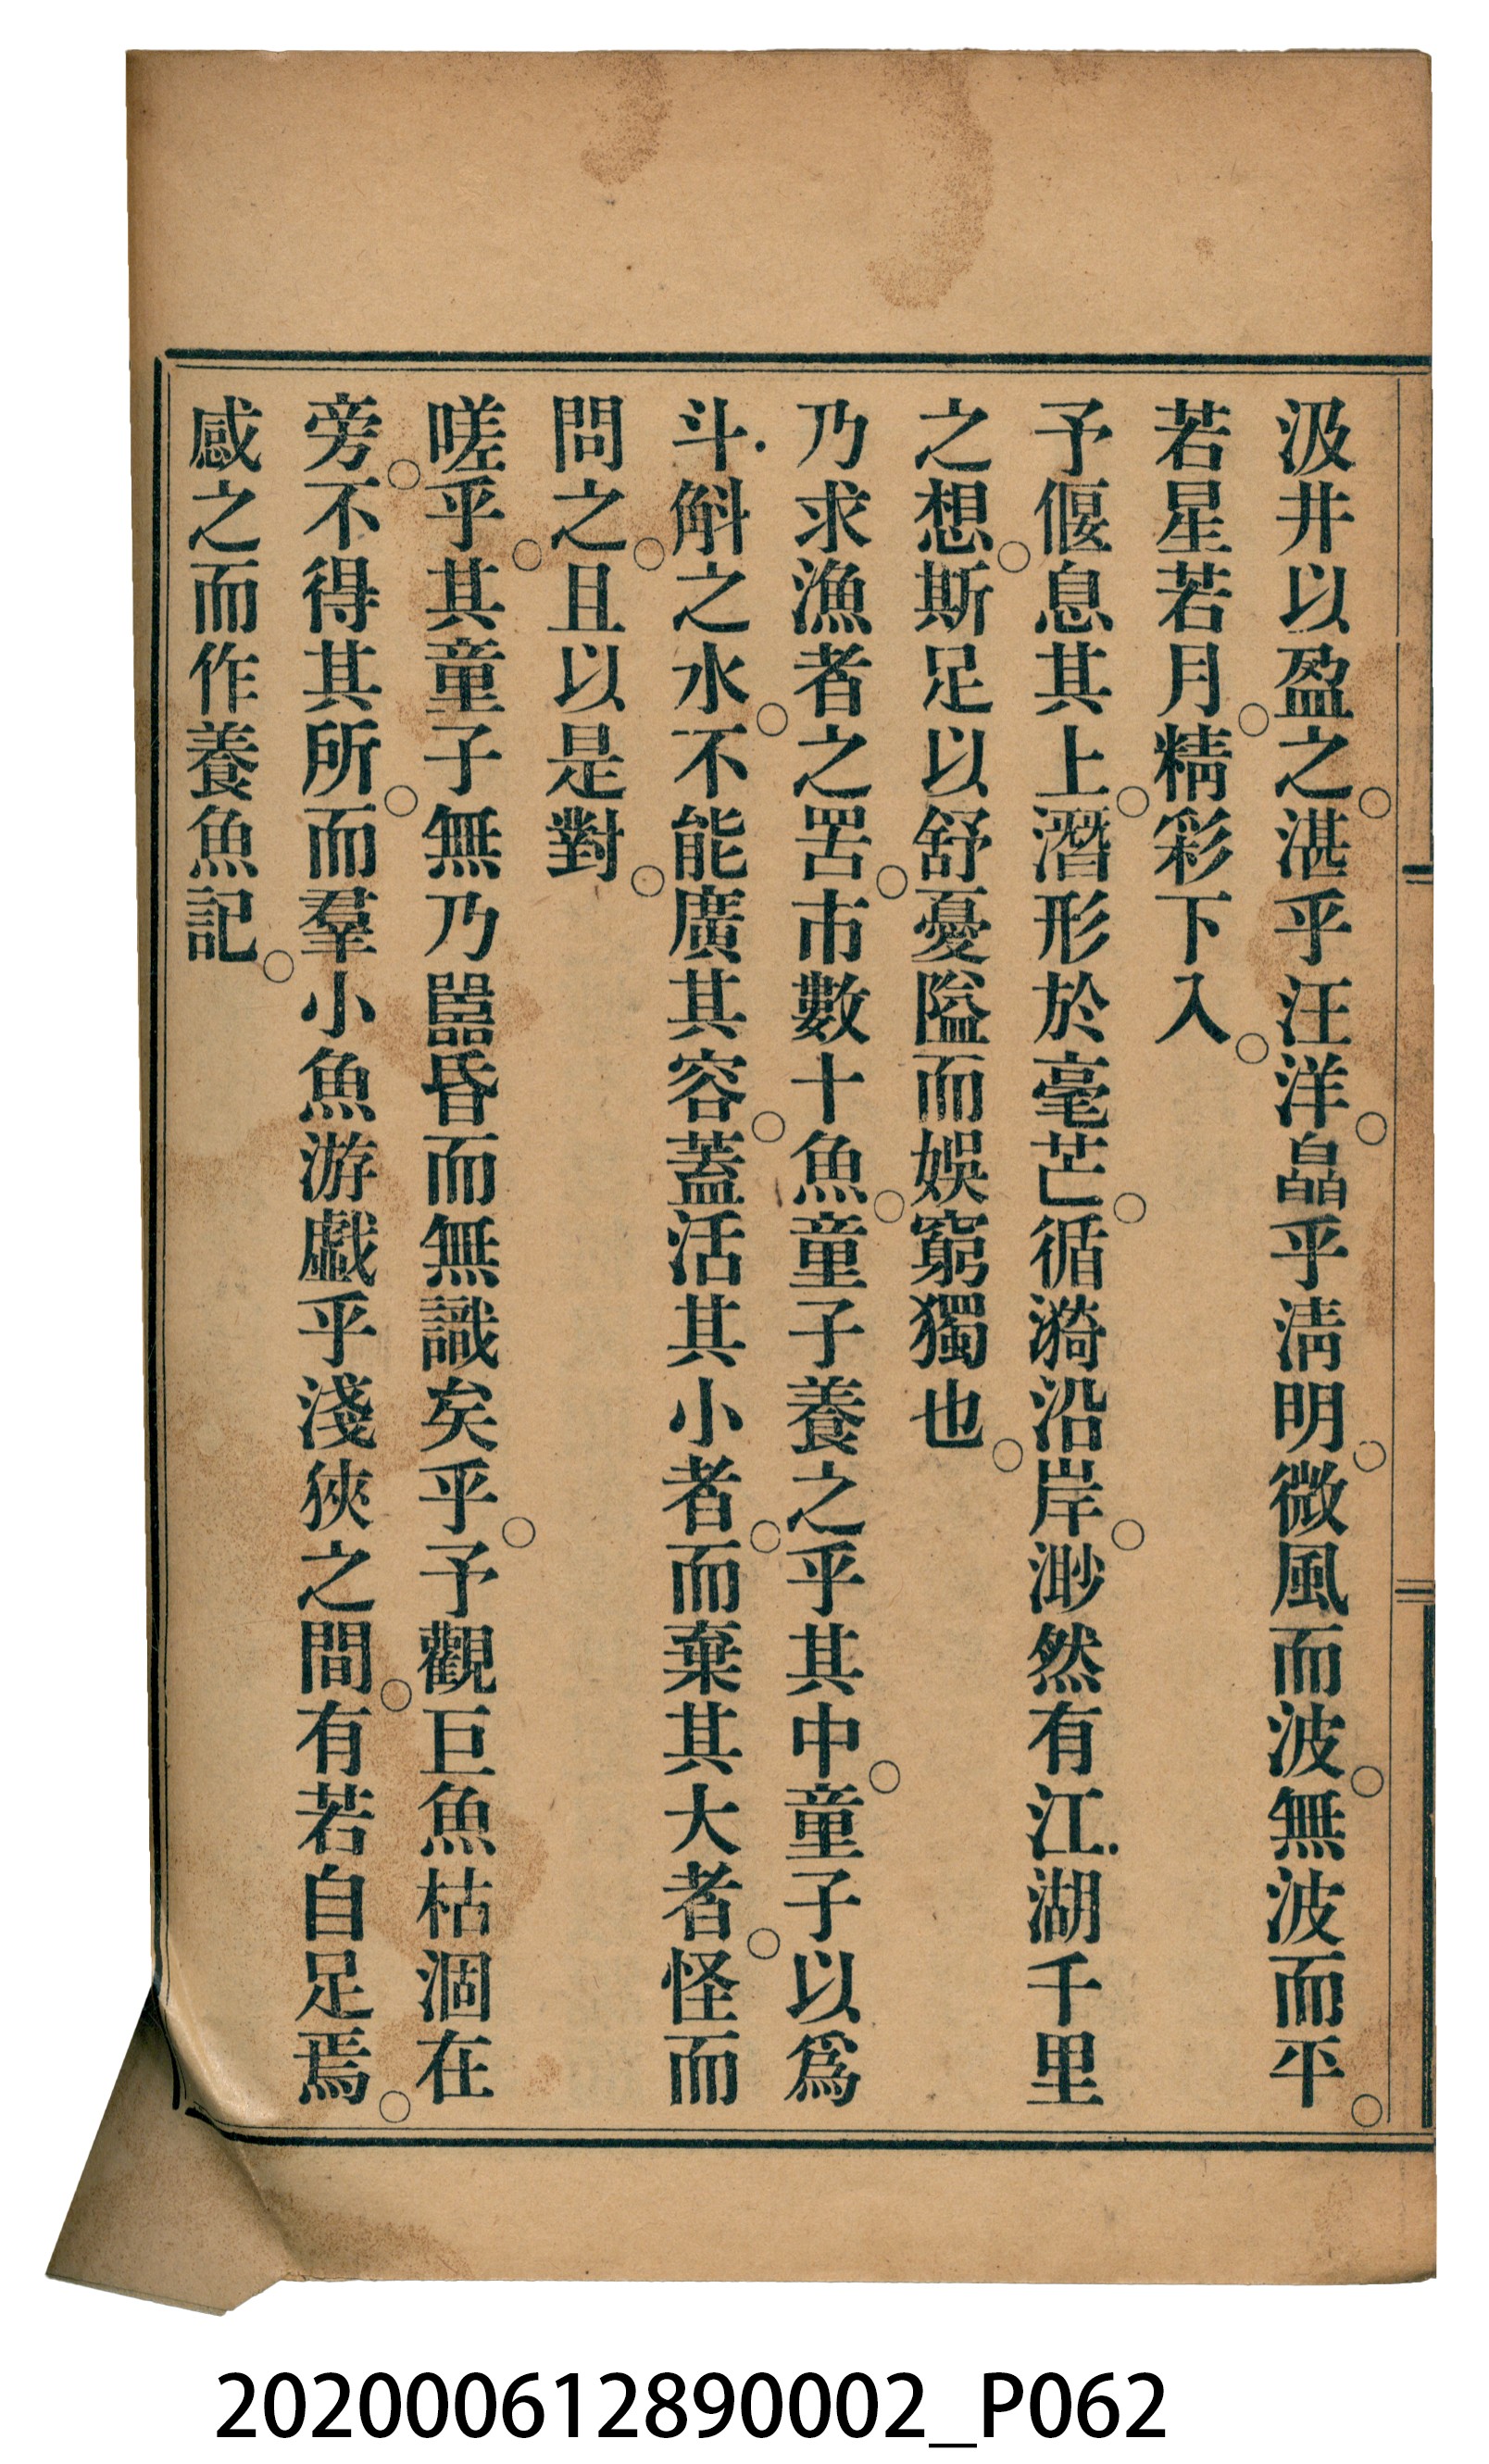 汲井以盈之。湛乎汪洋。皛乎淸明。微風而波。無波而平。
若星若月。精彩下入。
予偃息其上。潛形於毫芒。循漪沿岸。渺然有江．湖千里
之想。斯足以舒憂隘而娛窮獨也。
乃求漁者之罟。市數十魚。童子養之乎其中。童子以爲
斗．斛之水。不能廣其容。蓋活其小者。而棄其大者。怪而
問之。且以是對。
嗟乎。其童子無乃嚚昏而無識矣乎。予觀巨魚枯涸在
旁。不得其所。而羣小魚游戲乎淺狹之間。有若自足焉。
感之而作養魚記。
202000612890002_P062